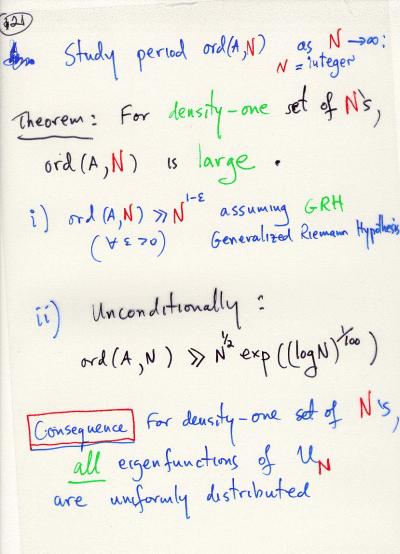 §21
Study period ord(A,N) as N→∞:
N = integer
Theorem: For density-one set of N's,
ord(A,N) is large.
i) ord(A,N) ≫ N^{1-ε} assuming GRH
(∀ ε>0) Generalized Riemann Hypothesis
ii) Unconditionally:
ord(A,N) ≫ N^{1/2} exp((log N)^{1/100})
Consequence For density-one set of N's,
all eigenfunctions of U_N
are uniformly distributed